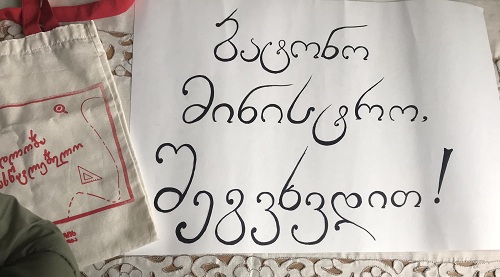 ბატონო
მინისტრო,
შეგვხვდით!